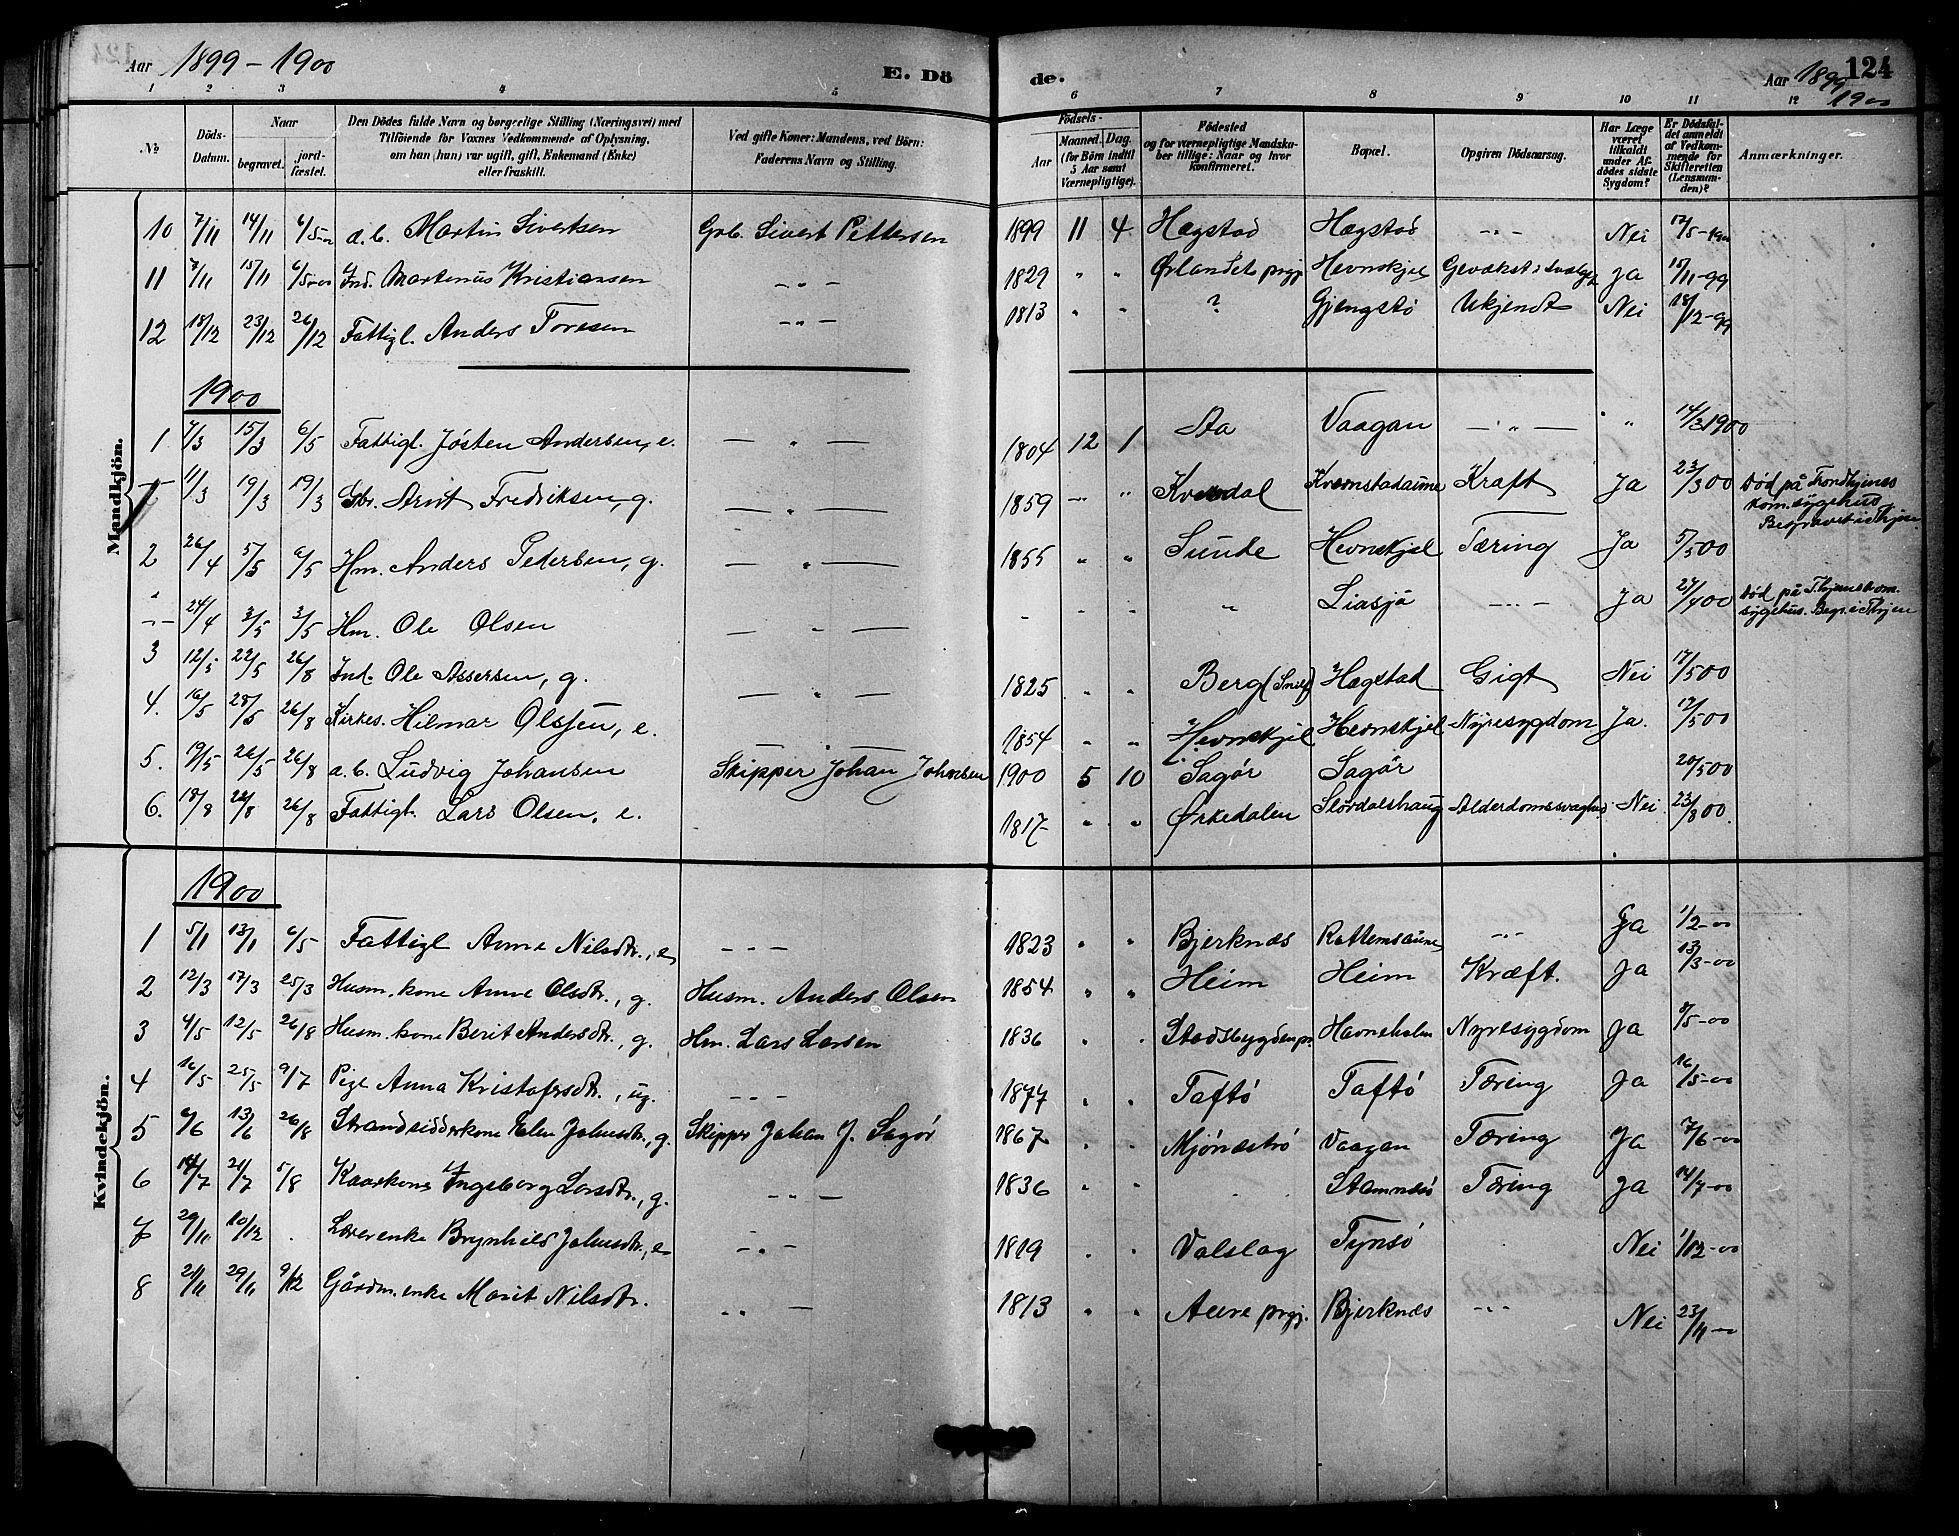 Aar 1899 - 1900 E. Dö de. Aar 1899 1900 124
1 2 3 4 5 6 7 8 9 10 11 12
No Döds-Datum. Naar begravet. jord-fæstet. Den Dödes fulde Navn og borgerlige Stilling (Næringsvei) med Tilföiende for Voxnes Vedkommende af Oplysning, om han (hun) var ugift, gift, Enkemand (Enke) eller fraskilt. Ved gifte Koner: Mandens, ved Börn: Faderens Navn og Stilling. Födsels- Aar Maaned. Dag. (for Börn indtil 5 Aar samt Værnepligtige). Födested og for værnepligtige Mandskaber tillige: Naar og hvor konfirmeret. Bopæl. Opgiven Dödsaarsag. Har Læge været tilkaldt under Afdödes sidste Sygdom? Er Dödsfaldet anmeldt af Vedkommende for Skifteretten (Lensmanden)? Anmærkninger.
Mandkjön.
10 7/11 14/11 6/5-00 a.b. Martin Sivertsen Grb. Sivert Pettersen 1899 11 4 Hægstad Hægstad -"- Nei 12/5-1900
11 7/11 15/11 6/5-00 Ind. Martenus Kristiansen -"- 1829 " " Ørlandet prgj Hevnskjel Gevækst i Svælget Ja 15/11-99
12 18/12 23/12 26/12 Fattigl. Anders Toresen -"- 1813 " " ? Gjengstø Ukjendt Nei 18/12-99
1900
1 7/3 15/3 6/5 Fattigl. Jøsten Andersen, e. - " - 1804 12 1 Aa Vaagan - " - " 14/3 1900
11/3 19/3 19/3 Gbr. Arnt Fredriksen, g. - " - 1859 - " Kvendal Kvernstadaune Kræft Ja 23/3 00 Død på Trondhjems kom. sygehus Begravet i Thjem
2 26/4 5/5 6/5 Hm. Anders Pedersen, g. - " - 1855 " " Sunde Hevnskjel Tæring Ja 5/5 00
-"- 24/4 3/5 3/5 Hm. Ole Olsen - " - - " " " Liasjø - " - Ja 27/4 00 Død på Thjems kom. sygehus. Begr. i Thjem
3 12/5 22/5 26/8 Ind. Ole Assersen, g. - " - 1825 " " Berg (Snilf) Hægstad Gigt Nei 17/5 00
4. 16/5 28/5 26/8 Kirkes. Hilmar Olssen, e. - " - 1854 " " Hevnskjel Hevnskjel Nyresygdom Ja. 17/5 00
5. 19/5 26/5 26/8 a.b. Ludvig Johansen Skipper Johan Johnsen 1900 5 10 Sagør Sagør 20/5 00
6. 18/8 26/8 26/8 Fattigl. Lars Olsen, e. 1817 " " Ørkedalen Slørdalshaug Alderdomssvaghed Nei 23/8 00.
Kvindekjön.
1900
1 5/1 13/1 6/5 Fattigl Anne Nilsdtr., e - - - 1823 " " Bjerknæs Rottemsaune -"- Ja 1/2-00
2 12/3 17/3 25/3 Husm. kone Anne Olsdtr., g. Husm. Anders Olsen 1854 " " Heim Heim Kræft. Ja 13/3-00
3 4/5 12/5 26/8 Husm. kone Berit Andersdtr., g. Hm. Lars Larsen 1836 " " Stadsbygden pr. Havneholm Nyresygdom Ja 7/5-00
4 16/5 25/5 9/7 Pige Anna Kristofersdtr., ug. - - - 1877 " " Taftø Taftø Tæring Ja 16/5-00
5 6/6 13/6 26/8 Strandsidderkone Elen Johnsdtr., g. Skipper Johan J. Sagør 1867 " " Mjønestrø Vaagan Tæring Ja 7/6-00
6 14/7 21/7 5/8 Kaarkone Ingeborg Larsdtr., g. -"- 1836 " " " Stamnesø Tæring Ja 14/7-00
7 29/11 10/12 Lærerenke Brynhild Johnsdtr., e -"- 1819 " " Valslag Tynsø Nei 1/12-00
8 21/11 29/11 9/12 Gårdm. enke Marit Nilsdtr. -"- 1813 " " Aure prgj. Bjerknæs -"- Nei 23/11-00